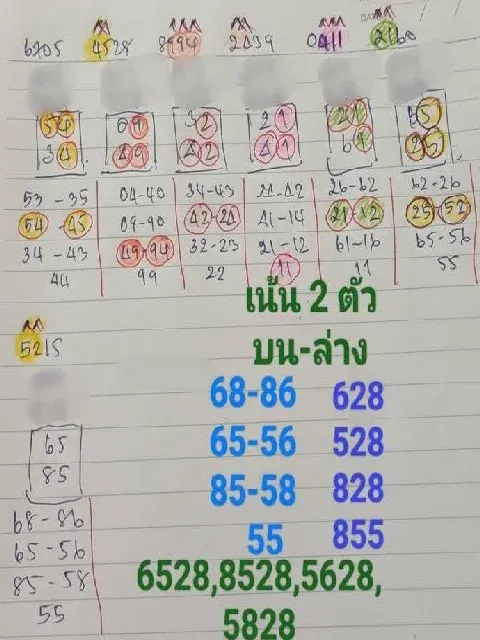 6705 4528 8994 2439 0411 2160
54 09 32 21 21 65
34 49 42 41 61 25
53-35 04-40 34-43 24-42 26-62 62-26
54-45 09-90 42-24 41-14 21-12 25-52
34-43 49-94 32-23 21-12 61-16 65-56
44 99 22 11 11 55
เน้น 2 ตัว
บน-ล่าง
5215
68-86 628
65-56 528
85-58 828
55 855
65
85
68-86
65-56
85-58
55
6528,8528,5628,
5828